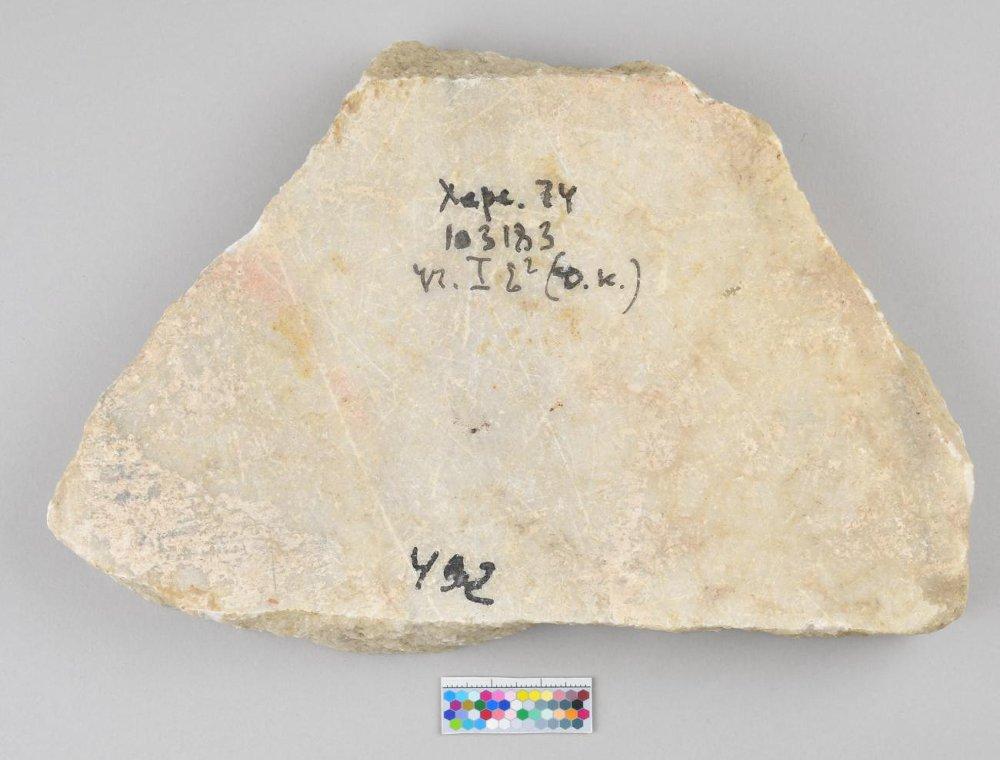 Херс. 74
103183
уг. I б² (Ю.К.)
492